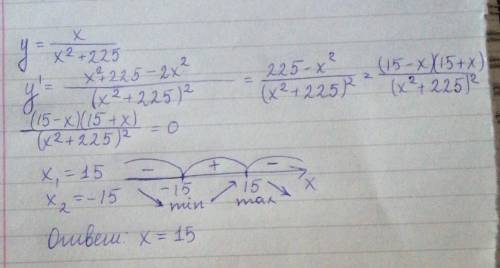 y = x / (x² + 225)
y' = (x² + 225 - 2x²) / (x² + 225)² = (225 - x²) / (x² + 225)² = (15 - x)(15 + x) / (x² + 225)²
(15 - x)(15 + x) / (x² + 225)² = 0
x₁ = 15 - + -
x₂ = -15 -15 15 x
min max
Ответ: x = 15